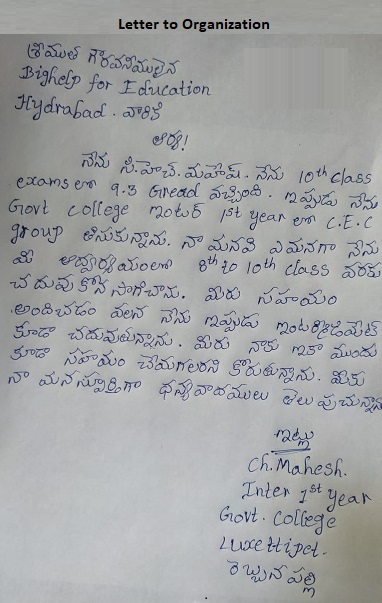 Letter to Organization
శ్రీయుత గౌరవనీయులైన
Bighelp for Education
Hydrabad. వారికి
ఆర్యా!
నేను సి.హెచ్. మహేష్. నేను 10th class
exams లో 9.3 Gread వచ్చింది. ఇప్పుడు నేను
Govt college ఇంటర్ 1st year లో C.E.C
group తీసుకున్నాను. నా మనవి ఏమనగా నేను
మీ ఆధ్వర్యయంలో 8th to 10th class వరకు
చదువు కొనసాగించాను. మీరు సహాయం
అందించడం వలన నేను ఇప్పుడు ఇంటర్మీడియేట్
కూడా చదువుతున్నాను. మీరు నాకు ఇకా ముందు
కూడా సహాయం చేయగలరని కోరుతున్నాను. మీకు
నా మనస్పూర్తిగా ధన్యవాదములు తెలుపుచున్నాను
ఇట్లు
Ch. Mahesh.
Inter 1st year
Govt. College
Luxettipet.
రెబ్బనపల్లి